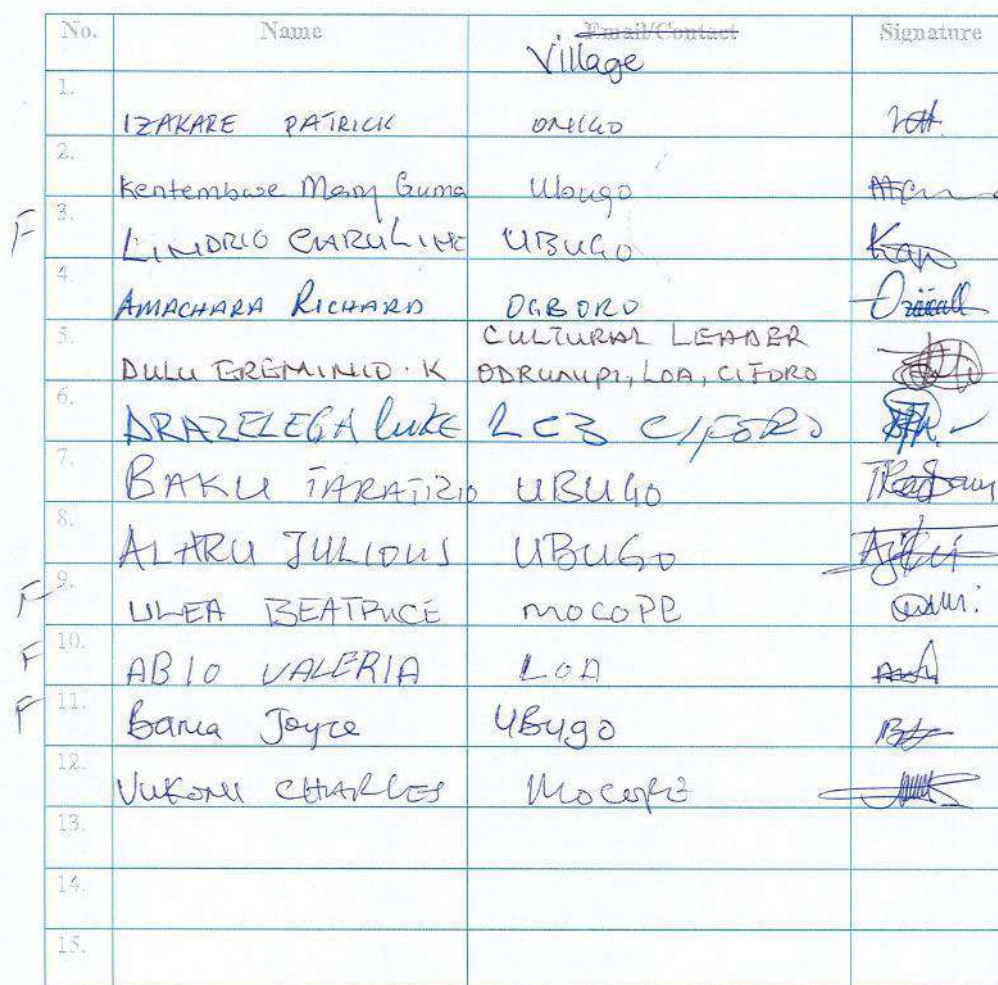 No. Name Email/Contact Signature
Village
1.
IZAKARE PATRICK
2.
Kentembwe Mary Guma Ubugo
F 3.
LINDRIO CAROLINE UBUGO
4.
AMACHARA RICHARD OGBORO
5. CULTURAL LEADER
DULU EREMINIO . K ODRUNUPI, LOA, CIFORO
6.
DRAZELEGA LUKE LC3 CIFORO
7.
BAKU TARATIZIO UBUGO
8.
ALARU JULIOUS UBUGO
F 9.
ULEA BEATRICE MOCOPE
F 10.
ABIO VALERIA LOA
F 11.
Bania Joyce UBugo
12.
VUKONI CHARLES
13.
14.
15.